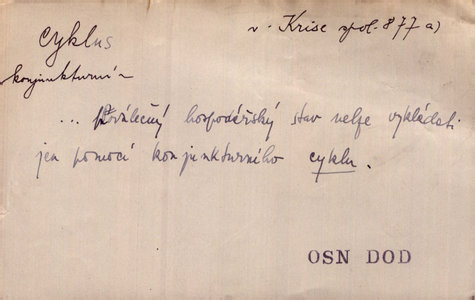 Cyklus
v. Krise spol. 877 a)
konjunkturní
... Poválečný hospodářský stav nelze vykládati
jen pomocí konjunkturního cyklu.
OSN DOD